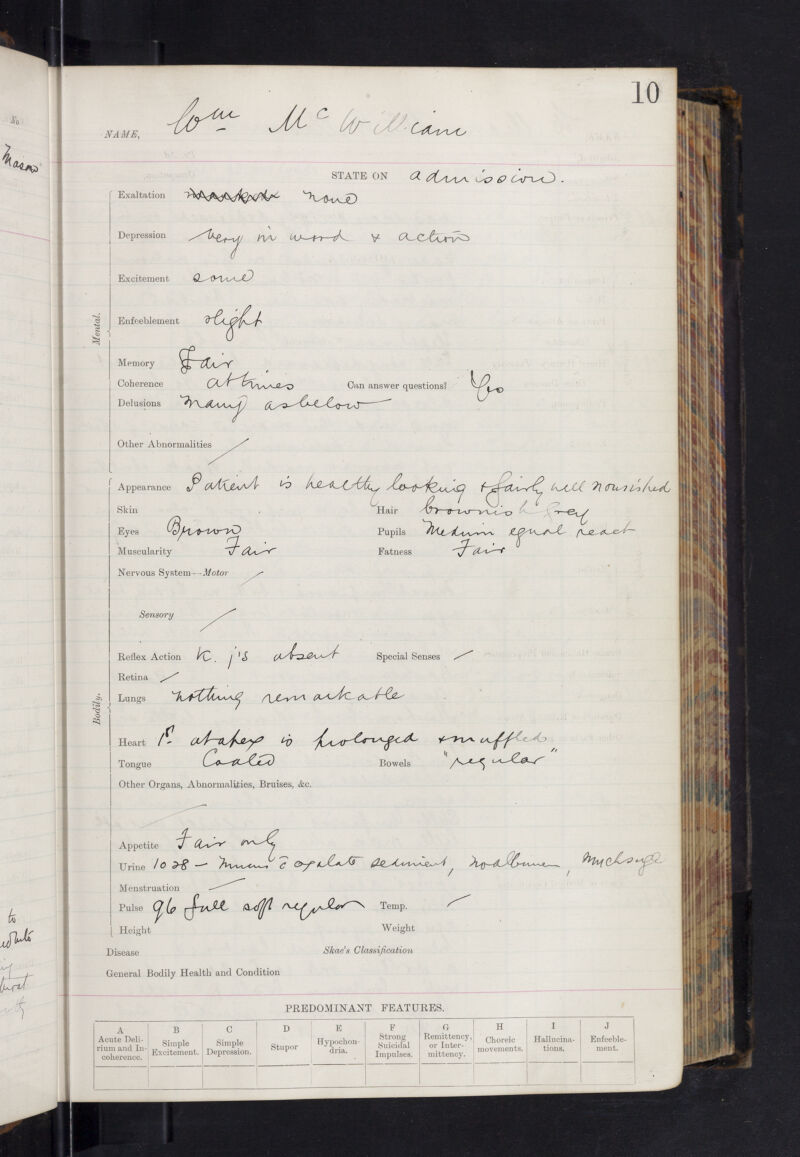 10
NAME, Wm McWilliam
No
Mason
STATE ON admission.
Mental.
Exaltation none
Depression Very in word & action
Excitement some
Enfeeblement slight
Memory Fair
Coherence at times Can answer questions? Yes
Delusions Many as below
Other Abnormalities /
Bodily.
Appearance Patient is healthy looking & fairly well nourished
Skin Hair brownish grey
Eyes Brown Pupils Medium equal react
Muscularity Fair Fatness Fair
Nervous System—Motor /
Sensory /
Reflex Action K. j's absent Special Senses /
Retina /
Lungs nothing remarkable
Heart 1st at apex is prolonged & muffled
Tongue Coated Bowels "regular"
Other Organs, Abnormalities, Bruises, &c.
/
Appetite Fair only
Urine 1028 — mucus c̄ oxalate sediment, no albumen, much sugar
Menstruation /
Pulse 96 full soft regular Temp. /
Height Weight
Disease Skae's Classification
General Bodily Health and Condition
to
PREDOMINANT FEATURES.
A B C D E F G H I J
Acute Deli-rium and In-coherence. Simple Excitement. Simple Depression. Stupor Hypochon-dria. Strong Suicidal Impulses. Remittency, or Inter-mittency. Choreic movements. Hallucina-tions. Enfeeble-ment.